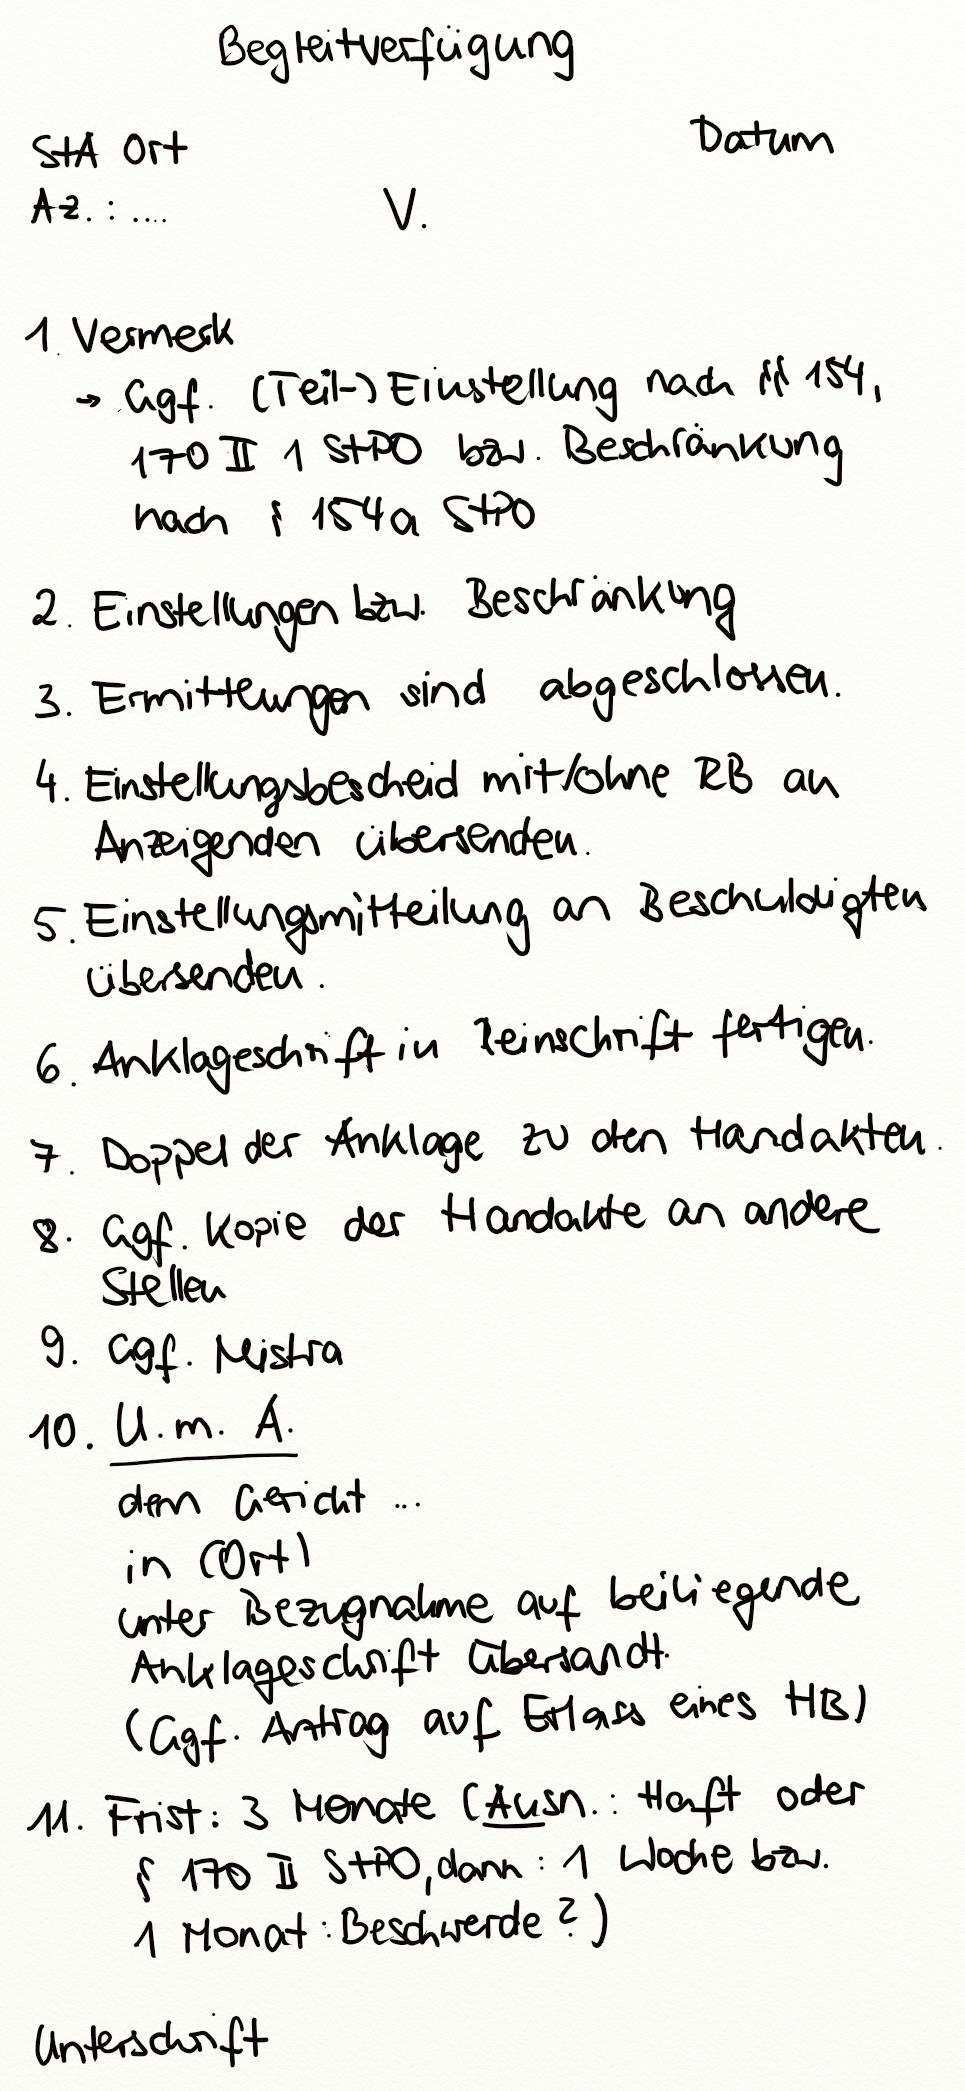 Begleitverfügung
StA Ort
Datum
Az.: ....
V.
1. Vermerk
→ Ggf. (Teil-) Einstellung nach §§ 154,
170 II 1 StPO bzw. Beschränkung
nach § 154a StPO
2. Einstellungen bzw. Beschränkung
3. Ermittlungen sind abgeschlossen.
4. Einstellungsbescheid mit/ohne RB an
Anzeigenden übersenden.
5. Einstellungsmitteilung an Beschuldigten
übersenden.
6. Anklageschrift in Reinschrift fertigen.
7. Doppel der Anklage zu den Handakten.
8. Ggf. Kopie der Handakte an andere
Stellen
9. Ggf. Mistra
10. U. m. A.
dem Gericht ...
in (Ort)
unter Bezugnahme auf beiliegende
Anklageschrift übersandt.
(Ggf. Antrag auf Erlass eines HB)
11. Frist: 3 Monate (Ausn.: Haft oder
§ 170 II StPO, dann: 1 Woche bzw.
1 Monat: Beschwerde?)
Unterschrift